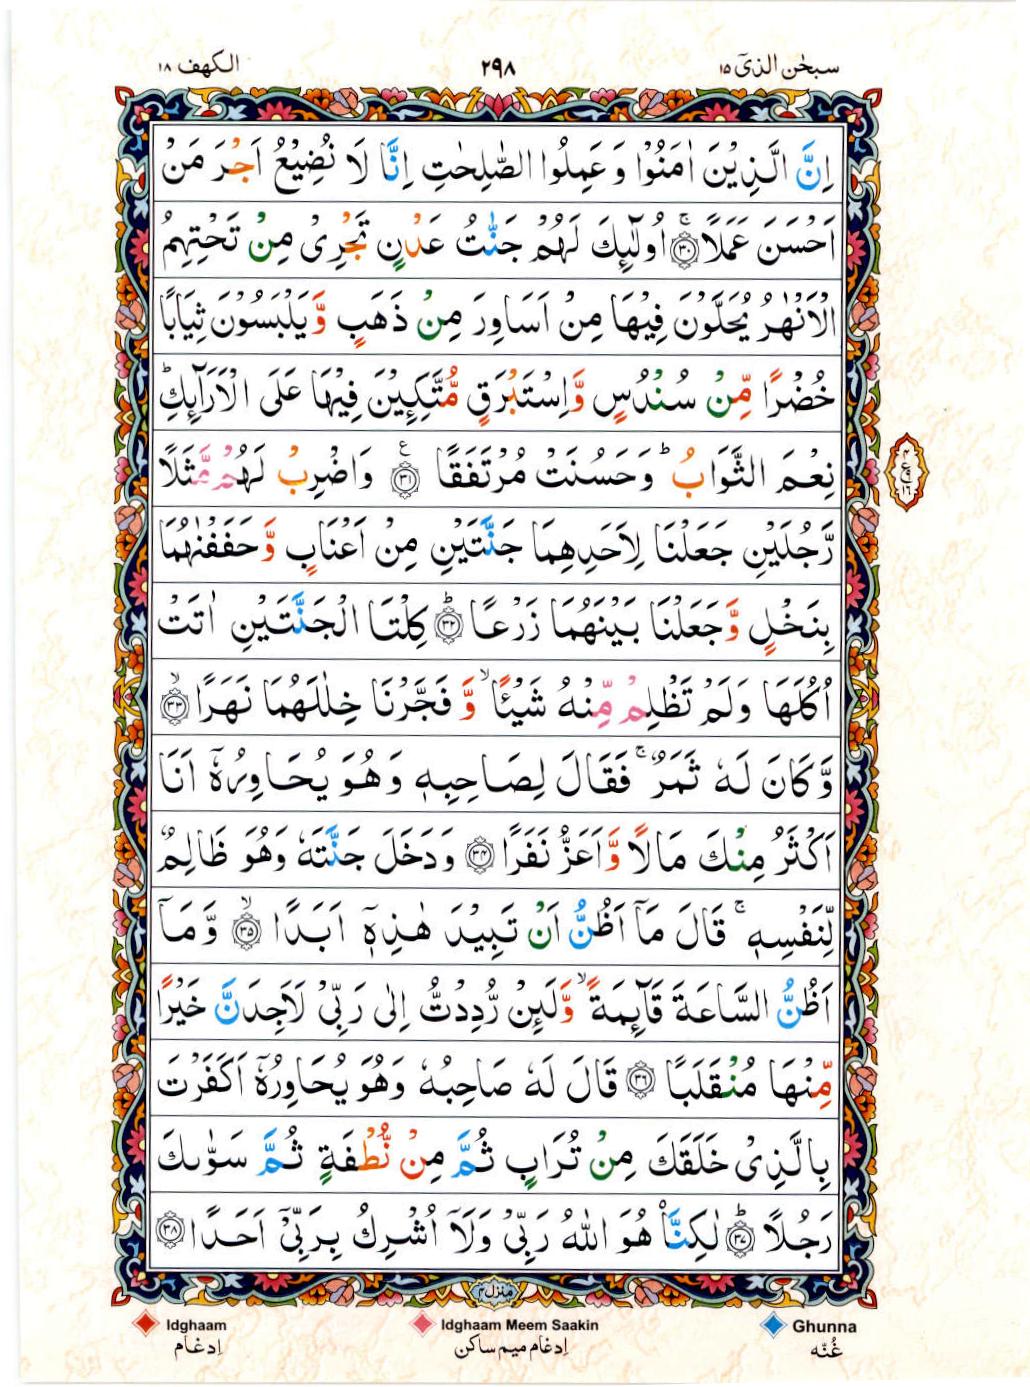 سبحٰن الذیٓ ۱۵
۲۹۸
الکهف ۱۸
اِنَّ الَّذِیْنَ اٰمَنُوْا وَ عَمِلُوا الصّٰلِحٰتِ اِنَّا لَا نُضِیْعُ اَجْرَ مَنْ
اَحْسَنَ عَمَلًا ۚ﴿۳۰﴾ اُولٰٓئِكَ لَهُمْ جَنّٰتُ عَدْنٍ تَجْرِیْ مِنْ تَحْتِهِمُ
الْاَنْهٰرُ یُحَلَّوْنَ فِیْهَا مِنْ اَسَاوِرَ مِنْ ذَهَبٍ وَّ یَلْبَسُوْنَ ثِیَابًا
خُضْرًا مِّنْ سُنْدُسٍ وَّ اِسْتَبْرَقٍ مُّتَّكِـِٕیْنَ فِیْهَا عَلَى الْاَرَآئِكِ ؕ
نِعْمَ الثَّوَابُ ؕ وَ حَسُنَتْ مُرْتَفَقًا ﴿۳۱﴾ وَاضْرِبْ لَهُمْ مَّثَلًا
رَّجُلَیْنِ جَعَلْنَا لِاَحَدِهِمَا جَنَّتَیْنِ مِنْ اَعْنَابٍ وَّ حَفَفْنٰهُمَا
بِنَخْلٍ وَّ جَعَلْنَا بَیْنَهُمَا زَرْعًا ؕ﴿۳۲﴾ كِلْتَا الْجَنَّتَیْنِ اٰتَتْ
اُكُلَهَا وَلَمْ تَظْلِمْ مِّنْهُ شَیْـًٔا ۙ وَّ فَجَّرْنَا خِلٰلَهُمَا نَهَرًا ۙ﴿۳۳﴾
وَّ كَانَ لَهٗ ثَمَرٌ ۚ فَقَالَ لِصَاحِبِهٖ وَ هُوَ یُحَاوِرُهٗۤ اَنَا
اَكْثَرُ مِنْكَ مَالًا وَّ اَعَزُّ نَفَرًا ﴿۳۴﴾ وَ دَخَلَ جَنَّتَهٗ وَ هُوَ ظَالِمٌ
لِّنَفْسِهٖ ۚ قَالَ مَاۤ اَظُنُّ اَنْ تَبِیْدَ هٰذِهٖۤ اَبَدًا ۙ﴿۳۵﴾ وَّ مَاۤ
اَظُنُّ السَّاعَةَ قَآئِمَةً ۙ وَّ لَىِٕنْ رُّدِدْتُّ اِلٰى رَبِّیْ لَاَجِدَنَّ خَیْرًا
مِّنْهَا مُنْقَلَبًا ﴿۳۶﴾ قَالَ لَهٗ صَاحِبُهٗ وَ هُوَ یُحَاوِرُهٗۤ اَكَفَرْتَ
بِالَّذِیْ خَلَقَكَ مِنْ تُرَابٍ ثُمَّ مِنْ نُّطْفَةٍ ثُمَّ سَوّٰىكَ
رَجُلًا ؕ﴿۳۷﴾ لٰكِنَّاۡ هُوَ اللّٰهُ رَبِّیْ وَ لَاۤ اُشْرِكُ بِرَبِّیْۤ اَحَدًا ﴿۳۸﴾
منزل ۴
Idghaam Idghaam Meem Saakin Ghunna
اِدغام اِدغام میم ساکن غُنّه